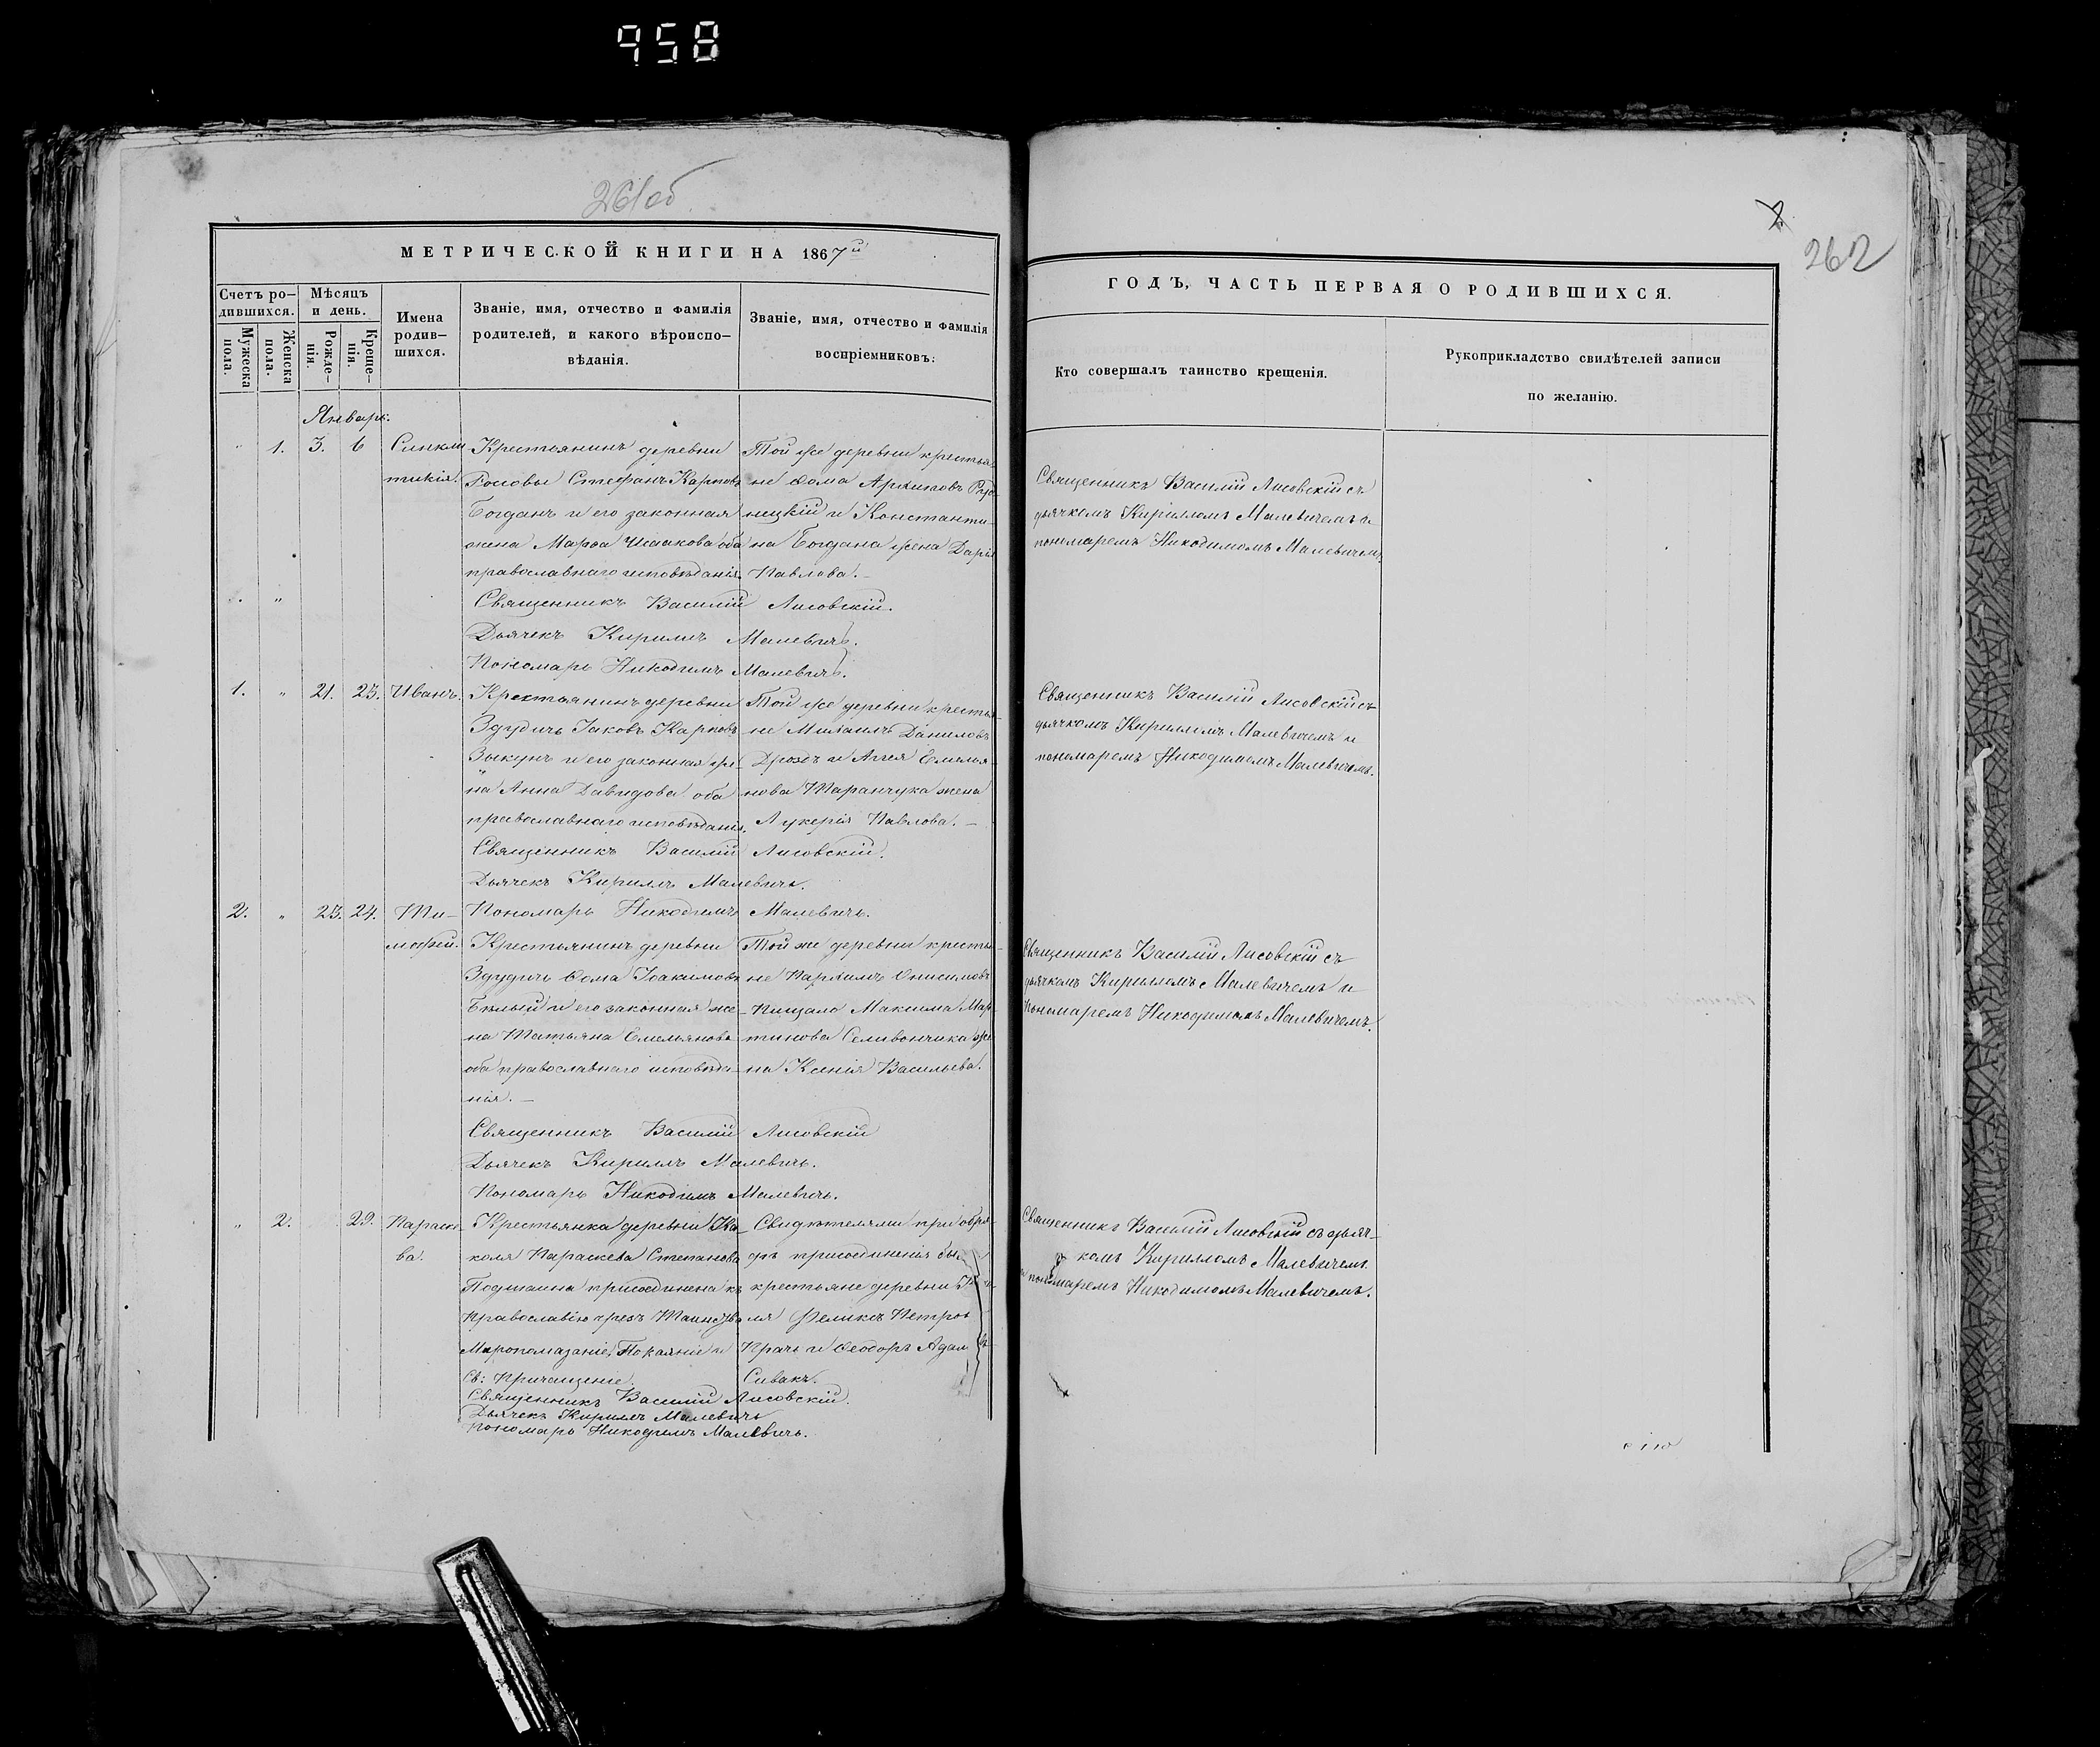 958
261об
МЕТРИЧЕСКОЙ КНИГИ НА 1867й
Счетъ ро-
дившихся.
Мужеска
пола.
Женска
пола.
Мѣсяцъ
и день.
Рожде-
нія.
Креще-
нія.
Имена
родив-
шихся.
Званіе, имя, отчество и фамилія
родителей, и какого вѣроиспо-
вѣданія.
Званіе, имя, отчество и фамилія
воспріемниковъ.
Январь.
" 1. 3. 6
Синкли
тикія.
Крестьянинъ деревни
Стефанъ Карповъ
Богданъ и его законная
жена Марѳа Исаакова оба
православнаго исповѣданія.
Той же деревни крестья
не Ѳома Архиповъ
нецкій и Константи-
на Богдана жена Дарія
Павлова.
Священникъ Василій Лисовскій.
Дьячекъ Кириллъ Малевичъ.
Пономарь Никодимъ Малевичъ.
1. " 21. 25. Иванъ.
Крестьянинъ деревни
Здудичъ Іаковъ Карповъ
Зыкунъ и его законная же-
на Анна Давидова оба
православнаго исповѣданія.
Той же деревни крестья-
не Михаилъ Даниловъ
Дроздъ и Емелья-
нова Таранчука жена
Лукерія Павлова.
Священникъ Василій Лисовскій.
Дьячекъ Кириллъ Малевичъ.
Пономарь Никодимъ Малевичъ.
2. " 23. 24. Ти-
моѳей.
Крестьянинъ деревни
Здудичъ Ѳома Іоакимовъ
Бѣлый и его законная же-
на Татьяна Емельянова
оба православнаго исповѣда-
нія.
Той же деревни крестья-
не Онисимовъ
Пищало Максима Мар-
тинова Селивончика же
на Ксенія Васильева.
Священникъ Василій Лисовскій
Дьячекъ Кириллъ Малевичъ.
Пономарь Никодимъ Малевичъ.
" 2. 29. Параске-
ва.
Крестьянка деревни Ка-
коля Параскева Степанова
присоединена къ
Православію чрезъ Таинство
Муропомазаніе, Покаяніе и
Св: Причащеніе.
Свидѣтелями при обря-
дѣ присоединенія
крестьяне деревни
ля Феликсъ
и Ѳеодоръ
Сивакъ.
Священникъ Василій Лисовскій.
Дьячекъ Кириллъ Малевичъ
Пономарь Никодимъ Малевичъ.
262
ГОДЪ, ЧАСТЬ ПЕРВАЯ О РОДИВШИХСЯ.
Кто совершалъ таинство крещенія.
Рукоприкладство свидѣтелей записи
по желанію.
Священникъ Василій Лисовскій съ
дьячкомъ Кирилломъ Малевичемъ и
пономаремъ Никодимомъ Малевичемъ.
Священникъ Василій Лисовскій съ
дьячкомъ Кирилломъ Малевичемъ и
пономаремъ Никодимомъ Малевичемъ.
Священникъ Василій Лисовскій съ
дьячкомъ Кирилломъ Малевичемъ и
пономаремъ Никодимомъ Малевичемъ.
Священникъ Василій Лисовскій съ дьяч-
комъ Кирилломъ Малевичемъ
и пономаремъ Никодимомъ Малевичемъ.